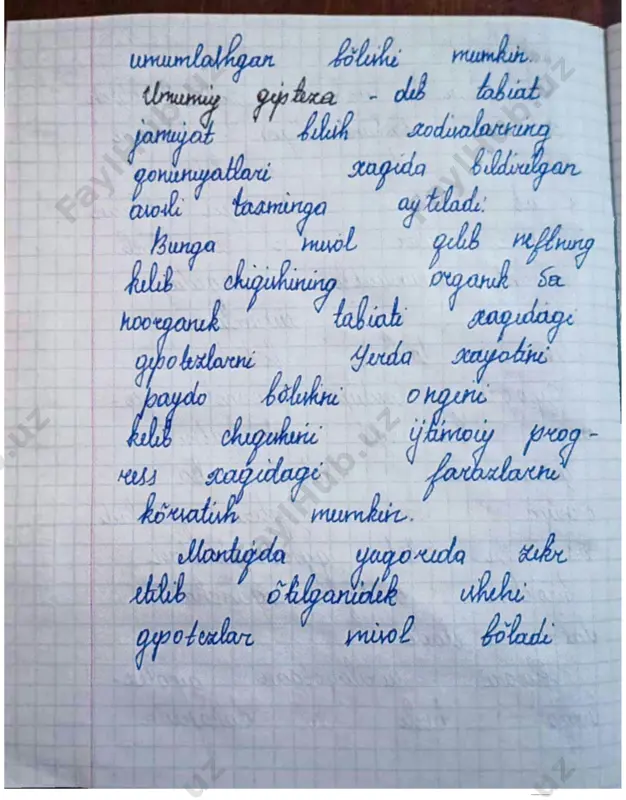 umumlashgan bŏlishi mumkin.
Umumiy gipteza - deb tabiat
jamiyat bilish xodisalarning
qonuniyatlari xaqida bildirilgan
asosli taxminga aytiladi:
Bunga misol qilib neftning
kelib chiqishining organik va
noorganik tabiati xaqidagi
gipotezlarni Yerda xayotini
paydo bŏlishini ongini
kelib chiqishini ijtimoiy prog-
ress xaqidagi farazlarni
kŏrsatish mumkin.
Mantiqda yuqorida zikr
etilib ŏtilganidek ishchi
gipotezlar misol bŏladi
FaylHub.uz